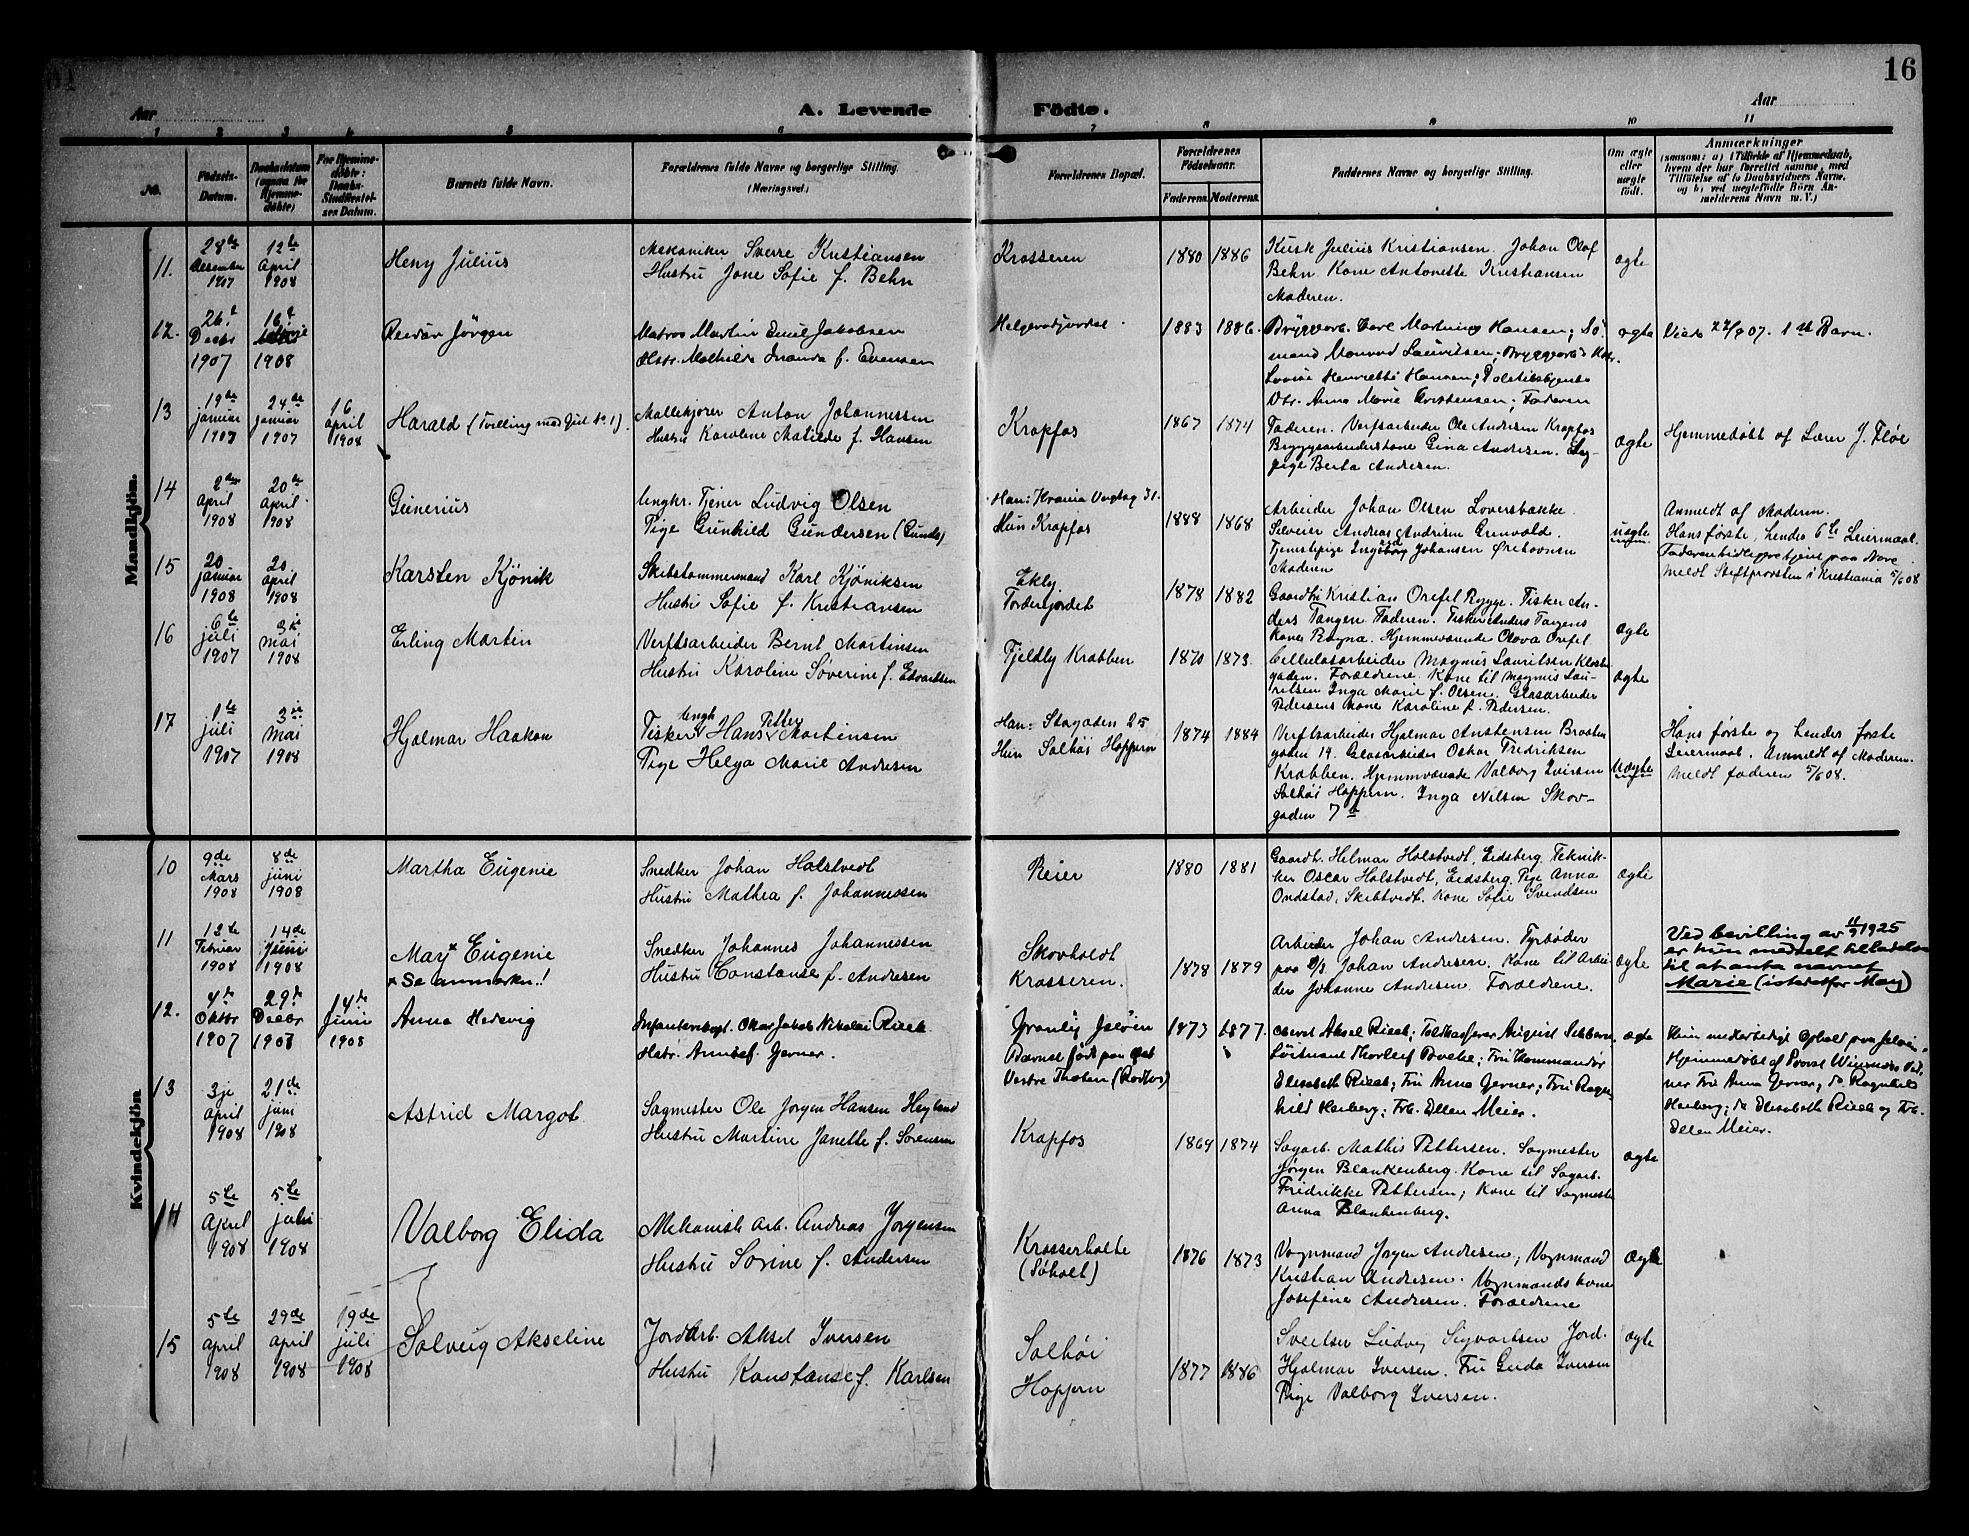 16
Aar
A. Levende
Födte.
Aar
1 2 3 4 5 6 7 8 9 10 11
No.
Fødsels-
Datum.
Daabsdatum
(ogsaa for
Hjemme-
døbte)
For Hjemme-
døbte:
Daabs-
Stadfæstel-
ses Datum.
Barnets fulde Navn.
Forældrenes fulde Navne og borgerlige Stilling.
(Næringsvei.)
Forældrenes Bopæl.
Forældrenes
Fødselsaar.
Faderens. Moderens.
Faddernes Navne og borgerlige Stilling.
Om ægte
eller
uægte
født.
Anmærkninger
(saasom: a) i Tilfælde af Hjemmedaab,
hvem der har forrettet samme, med
Tilføielse af to Daabsvidners Navne.
og b) ved uegtefödte Börn An-
melderens Navn m. V.)
Mandkjön.
11.
28de
Desember
1907
12te
April
1908
Heny Julius
Mekaniker Sverre Kristiansen
Hustru Jone Sofie f. Behn
Krosseren
1880 1886
Kusk Julius Kristiansen. Johan Olaf
Behn Kone Antonette Kristiansen
Moderen.
ægte
12.
26.
Decbr
1907
16
1908
Reidar Jörgen
Matros Martin Emil Jakobsen
Hstr. Mathilde Inanda f. Evensen
1883 1886.
Bryggearb. Carl Martinius Hansen; Sö-
mand Monrad Lauritsen; Bryggearb's Kone
Lovise Henriette Hansen; Politibetjents
Dtr. Anna Marie Kristensen; Faderen
ægte
Viede 22/9 07. 1ste Barn.
13
19de
januar
1907
24de
januar
1907
16
april
1908
Harald (Tvilling med Gut No 1).
Møllekjører Anton Johannessen
Hustru Karoline Matilde f. Hansen
Krapfos
1867 1874
Faderen. Verftsarbeider Ole Andersen Krapfos
Bryggearbeiderskone Gina Andersen. Sy-
pige Berta Andersen.
ægte
Hjemmedøbt af Lærer J. Fløe
14
2den
April
1908
20de
April
1908
Gunerius
Ungkr. Tjener Ludvig Olsen
Pige Gunhild Gundersen (Gunds)
Han: Krania Vogtsg 31.
Hun Krapfos
1888 1868
Arbeider Johan Olsen Loversbakke.
Selveier Andreas Andersen Grunvold.
Tjenstepige Ingeborg Johansen
Moderen
uægte
Anmeldt af Moderen.
Hans første, hendes 6te Leiermaal.
Meldt Stiftprovsten i Kristiania 5/6 08
15
20
januar
1908
20.
april
1908
Karsten Kjönik
Skibstømmermand Karl Kjöniksen
Hustru Sofie f. Kristiansen
Ekly
Torderjordet
1878 1882
Gaardbr Kristian Orefel Rygge. Fisker An-
ders Tangen Faderen. Fisker Anders Tangens
Kone Ragna. Hjemmeværende Olava Orefel
ægte
16
6te
juli
1907
3de
mai
1908
Erling Martin
Verftsarbeider Bernt Martinsen
Hustru Karoline Söverine f. Edvardsen
Fjeldly Krabben
1870 1873.
Cellulosarbeider Magnus Lauritsen Kloster
gaden. Forældrene. Kone til Magnus Lau-
ritsen Inga Marie f. Olsen. Glasarbeider
Pedersens Kone Karoline f. Pedersen.
ægte
17
1te
juli
1907
3de
Mai
1908
Hjalmar Haakon
Ungk Petter
Fisker Hans Martinsen
Pige Helga Marie Andresen
Han: Stagaden 25
Hun Solhöi Hoppern
1874 1884
Verftsarbeider Hjalmar Anstensen Braaten
gaden 14. Glasarbeider Oskar Fredriksen
Krabben. Hjemmværende Valborg Iversen
Solhöi Hoppern. Inga Nilsen Skov-
gaden 7b
Uægte
Hans første og hendes første
Leiermaal. Anmeldt af Moderen.
Meldt faderen 5/6 08.
Kvindekjön
10
9de
Mars
1908
8de
juni
1908
Martha Eugenie
Snedker Johan Holstvedt
Hustru Mathea f. Johannessen
Reier
1880 1881
Gaardb. Helmar Holstvedt, Eidsberg. Teknik-
ker Oscar Holstvedt, Eidsberg. Pige Anna
Ondstad, Skibtvedt. Kone Sofie Svendsen
ægte
11
12te
Februar
1908
14de
Juni
1908
May× Eugenie
× Se anmerkn.!
Snedker Johannes Johannessen
Hustru Constanse f. Andresen
Skovholdt
Krosseren.
1878 1879
Arbeider Johan Andresen. Fyrbøder
paa D/s. Johan Andresen. Kone til Arbei
der Johanne Andresen. Forældrene.
ægte
Ved bevilling av 11/9 1925
er hun meddelt tilladelse
til at anta navnet
Marie (istedetfor May)
12.
4de
Oktbr
1907
29de
Decbr
1907
14de
Juni
1908
Anna Hedevig
Infanterikapt. Oskar Jakob Nikolai Rieck
Hstr. Anna f. Gerner.
Granly Jelöen
Barnet født paa
Vestre Thoten (Rødfos)
1873 1877.
Oberst Aksel Rieck; Toldkasserer August Sibbern
Löitnant Thorleif Boeke; Fru Kommandör
Elisabeth Rieck; Fru Anna Gerner; Fru Ragn
hild Herberg; Frk. Ellen Meier.
ægte
Hun midlertidigt Ophold paa Jelöen.
Hjemmedøbt af Provst
ner Fru Anna Gerner; do Ragnhild
Herberg; do Elisabeth Rieck og Frk.
Ellen Meier.
13
3je
april
1908
21de
juni
1908
Astrid Margot
Sagmester Ole Jorgen Hansen Heyland
Hustru Martine Janette f. Sørensen
Krapfos
1864 1874
Sagarb. Mathis Pettersen. Sagmester
Jörgen Blankenberg. Kone til Sagarb.
Fredrikke Pettersen; Kone til Sagmester
Anna Blankenberg.
ægte
14
5te
April
1908
5te
juli
1908
Valborg Elida
Mekanisk Arb. Andreas Jorgensen
Hustru Sorine f. Andersen
Krosserholte
(Söholt)
1876 1873
Vognmand Jorgen Andresen; Vognmand
Kristian Andresen. Vognmands kone
Josefine Andresen. Forældrene
Ægte
15
5te
April
1908
29de
april
1908
19de
juli
1908
Solveig Akseline
Jordarb. Aksel Iversen
Hustru Konstanse f. Karlsen
Solhöi
Hoppern
1877 1886
Sveitser Ludvig Sigvartsen Jord.
Hjalmar Iversen. Fru Gerda Iversen
Pige Valborg Iversen.
ægte